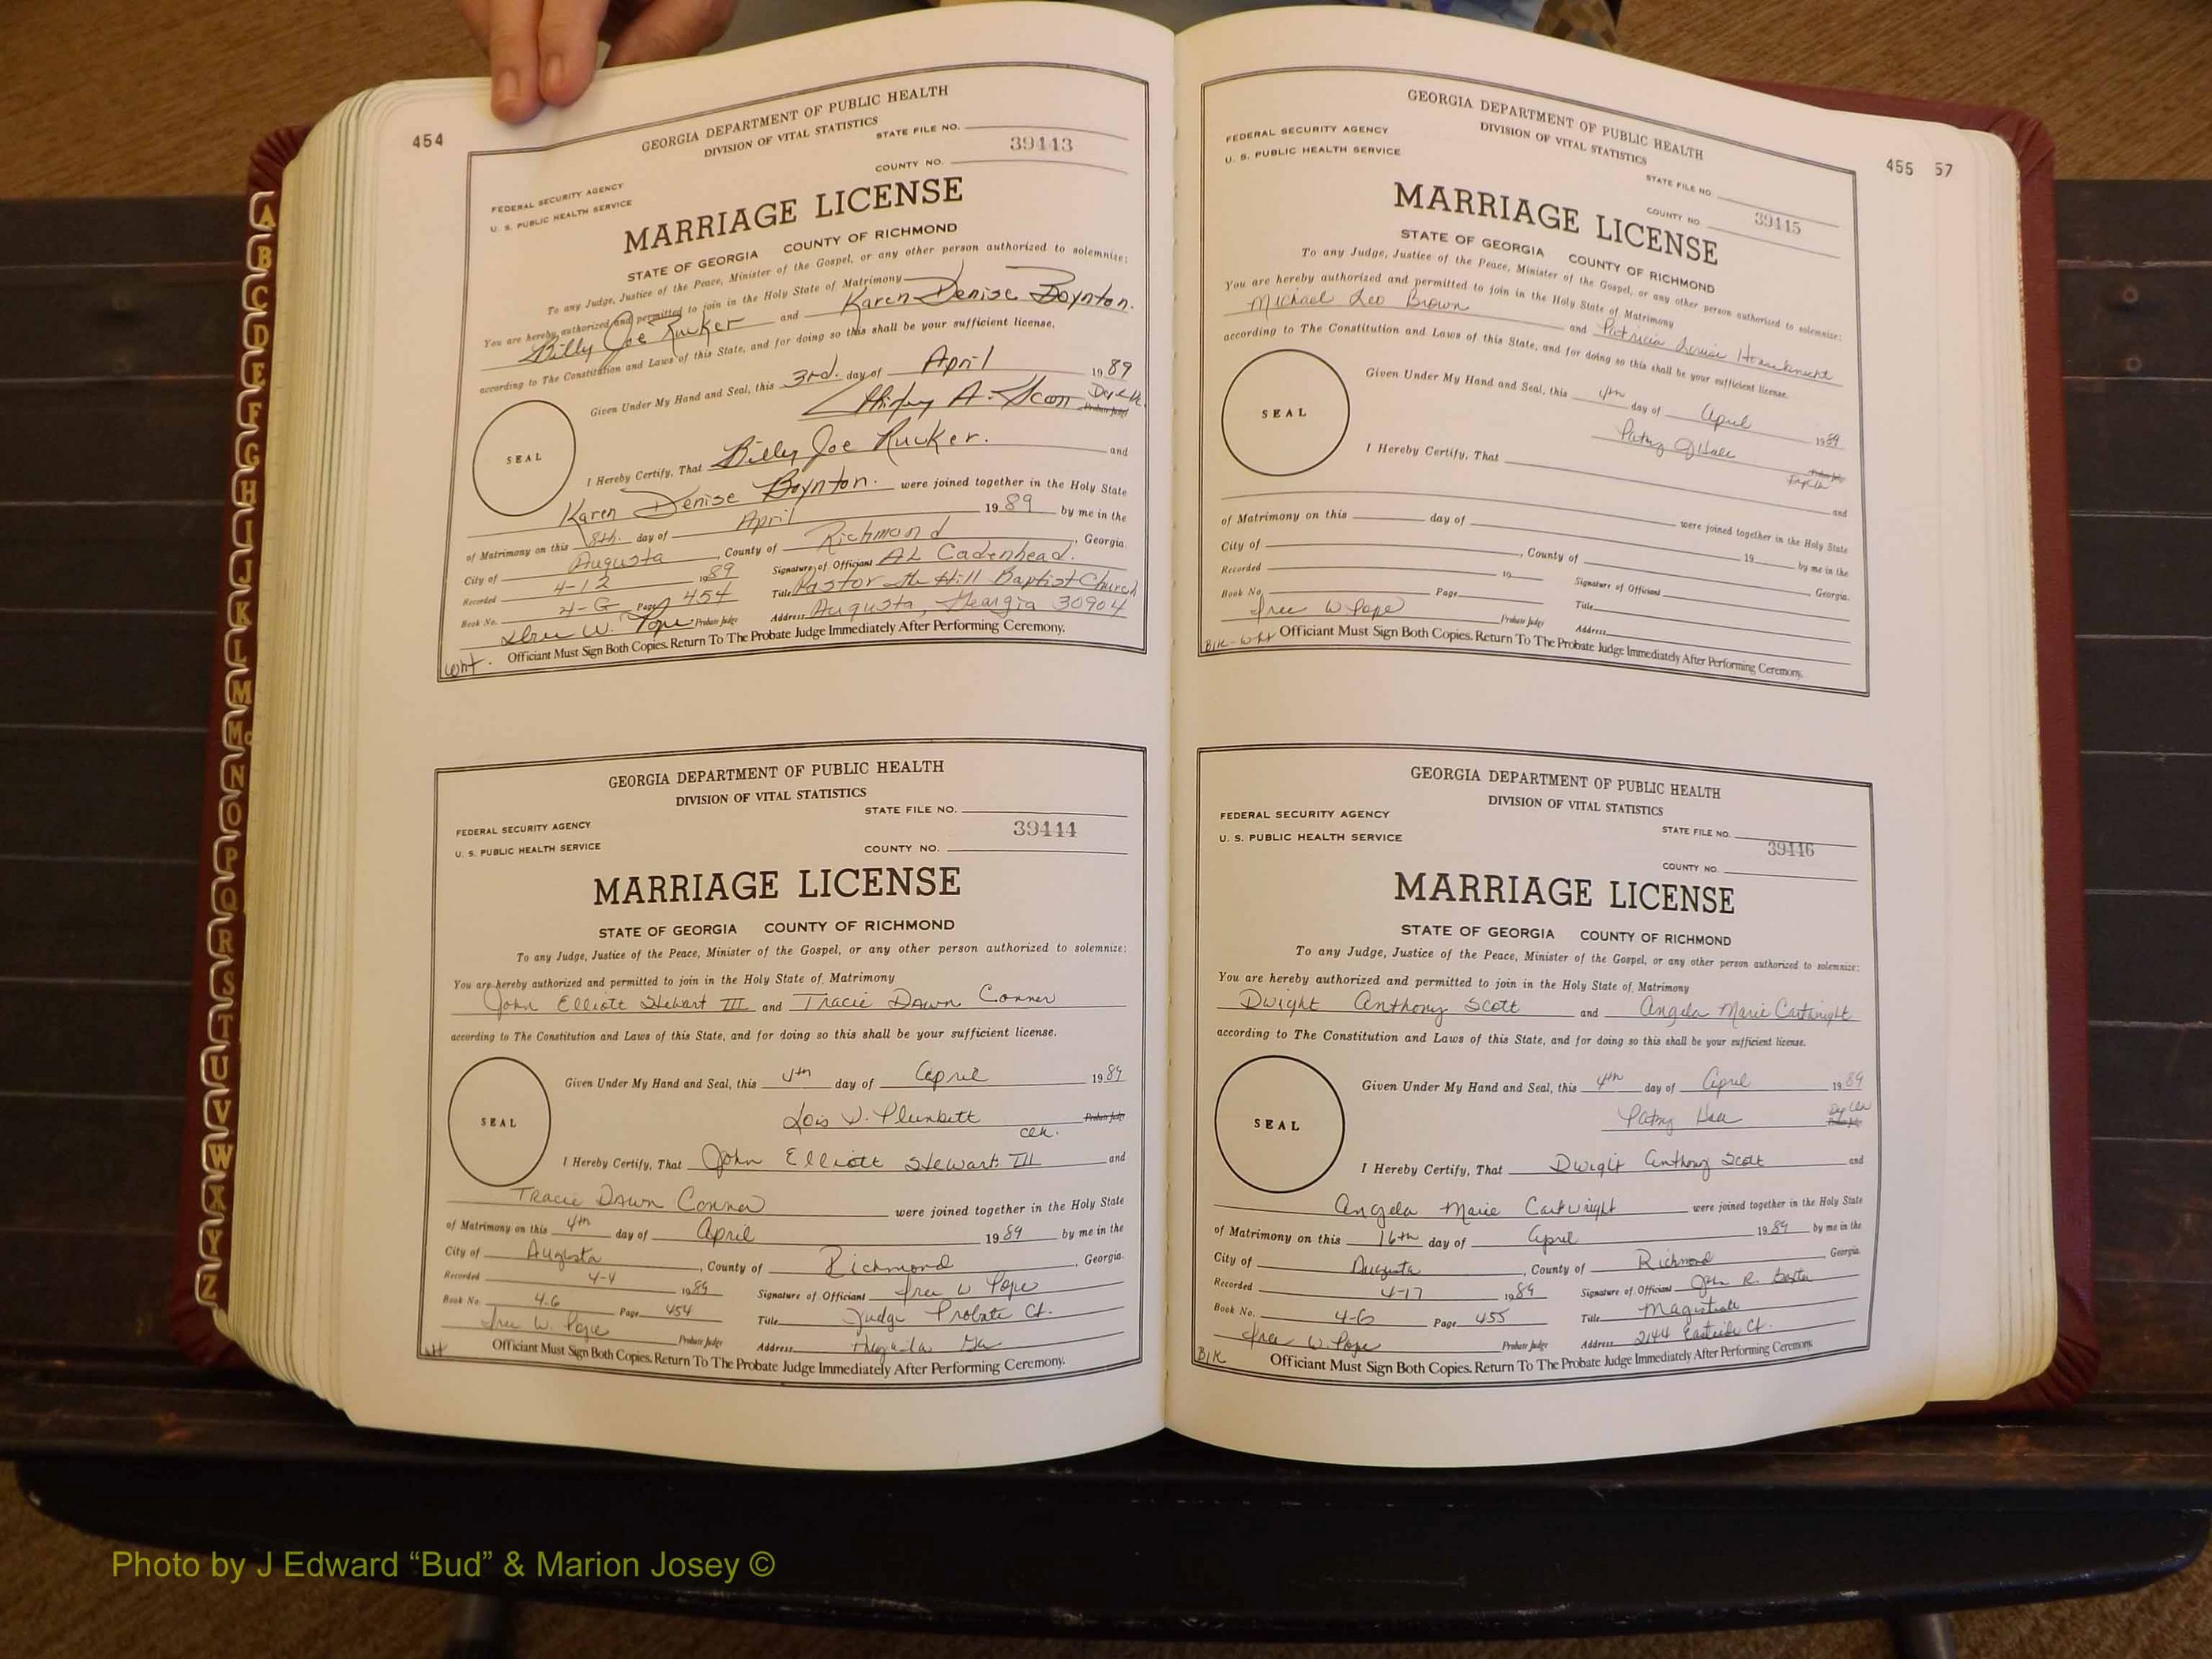 454
GEORGIA DEPARTMENT OF PUBLIC HEALTH
DIVISION OF VITAL STATISTICS
STATE FILE NO.
39443
COUNTY NO.
FEDERAL SECURITY AGENCY
U. S. PUBLIC HEALTH SERVICE
MARRIAGE LICENSE
STATE OF GEORGIA COUNTY OF RICHMOND
To any Judge, Justice of the Peace, Minister of the Gospel, or any other person authorized to solemnize:
You are hereby authorized and permitted to join in the Holy State of Matrimony
Billy Joe Rucker and Karen Denise Boynton.
according to The Constitution and Laws of this State, and for doing so this shall be your sufficient license.
Given Under My Hand and Seal, this 3rd. day of April 1989
Shirley A. Scott
Probate Judge
SEAL
I Hereby Certify, That Billy Joe Rucker. and
Karen Denise Boynton. were joined together in the Holy State
of Matrimony on this 8th. day of April 1989 by me in the
City of Augusta, County of Richmond, Georgia.
Recorded 4-12 1989 Signature of Officiant AL Cadenhead.
Book No. 4-G Page 454 Title Pastor the Hill Baptist Church
W. Pope Probate Judge Address Augusta, Georgia 30904
Wht. Officiant Must Sign Both Copies. Return To The Probate Judge Immediately After Performing Ceremony.
GEORGIA DEPARTMENT OF PUBLIC HEALTH
DIVISION OF VITAL STATISTICS
STATE FILE NO.
39444
FEDERAL SECURITY AGENCY
U. S. PUBLIC HEALTH SERVICE
COUNTY NO.
MARRIAGE LICENSE
STATE OF GEORGIA COUNTY OF RICHMOND
To any Judge, Justice of the Peace, Minister of the Gospel, or any other person authorized to solemnize:
You are hereby authorized and permitted to join in the Holy State of Matrimony
John Elliott Stewart III and Tracie Dawn Conner
according to The Constitution and Laws of this State, and for doing so this shall be your sufficient license.
Given Under My Hand and Seal, this 4th day of April 1989
Lois D. Plunkett Probate Judge
Clk.
SEAL
I Hereby Certify, That John Elliott Stewart III and
Tracie Dawn Conner were joined together in the Holy State
of Matrimony on this 4th day of April 1989 by me in the
City of Augusta, County of Richmond, Georgia.
Recorded 4-4 1989 Signature of Officiant W Pope
Book No. 4-G Page 454 Title Judge Probate Ct.
W. Pope Probate Judge Address Augusta Ga
Officiant Must Sign Both Copies. Return To The Probate Judge Immediately After Performing Ceremony.
455 57
GEORGIA DEPARTMENT OF PUBLIC HEALTH
DIVISION OF VITAL STATISTICS
FEDERAL SECURITY AGENCY
U. S. PUBLIC HEALTH SERVICE
STATE FILE NO.
COUNTY NO. 39445
MARRIAGE LICENSE
STATE OF GEORGIA COUNTY OF RICHMOND
To any Judge, Justice of the Peace, Minister of the Gospel, or any other person authorized to solemnize:
You are hereby authorized and permitted to join in the Holy State of Matrimony
Michael Leo Brown and Patricia Louise
according to The Constitution and Laws of this State, and for doing so this shall be your sufficient license.
Given Under My Hand and Seal, this 4th day of April 1989
SEAL
I Hereby Certify, That
and
were joined together in the Holy State
of Matrimony on this day of 19 by me in the
City of , County of Georgia.
Recorded 19 Signature of Officiant
Book No. Page Title
W Pope Probate Judge Address
Blk-Wht Officiant Must Sign Both Copies. Return To The Probate Judge Immediately After Performing Ceremony.
GEORGIA DEPARTMENT OF PUBLIC HEALTH
DIVISION OF VITAL STATISTICS
FEDERAL SECURITY AGENCY
U. S. PUBLIC HEALTH SERVICE
STATE FILE NO.
39446
COUNTY NO.
MARRIAGE LICENSE
STATE OF GEORGIA COUNTY OF RICHMOND
To any Judge, Justice of the Peace, Minister of the Gospel, or any other person authorized to solemnize:
You are hereby authorized and permitted to join in the Holy State of Matrimony
Dwight Anthony Scott and Angela Marie Cartwright
according to The Constitution and Laws of this State, and for doing so this shall be your sufficient license.
Given Under My Hand and Seal, this 4th day of April 1989
SEAL
I Hereby Certify, That Dwight Anthony Scott and
Angela Marie Cartwright were joined together in the Holy State
of Matrimony on this 16th day of April 1989 by me in the
City of Augusta, County of Richmond Georgia.
Recorded 4-17 1989 Signature of Officiant John R. Baxter
Book No. 4-G Page 455 Title Magistrate
W. Pope Probate Judge Address 2144 Eastside Ct.
Blk Officiant Must Sign Both Copies. Return To The Probate Judge Immediately After Performing Ceremony.
A
B
C
D
E
F
G
H
I
J
K
L
M
Mc
N
O
P
Q
R
S
T
U
V
W
X
Y
Z
Photo by J Edward “Bud” & Marion Josey ©